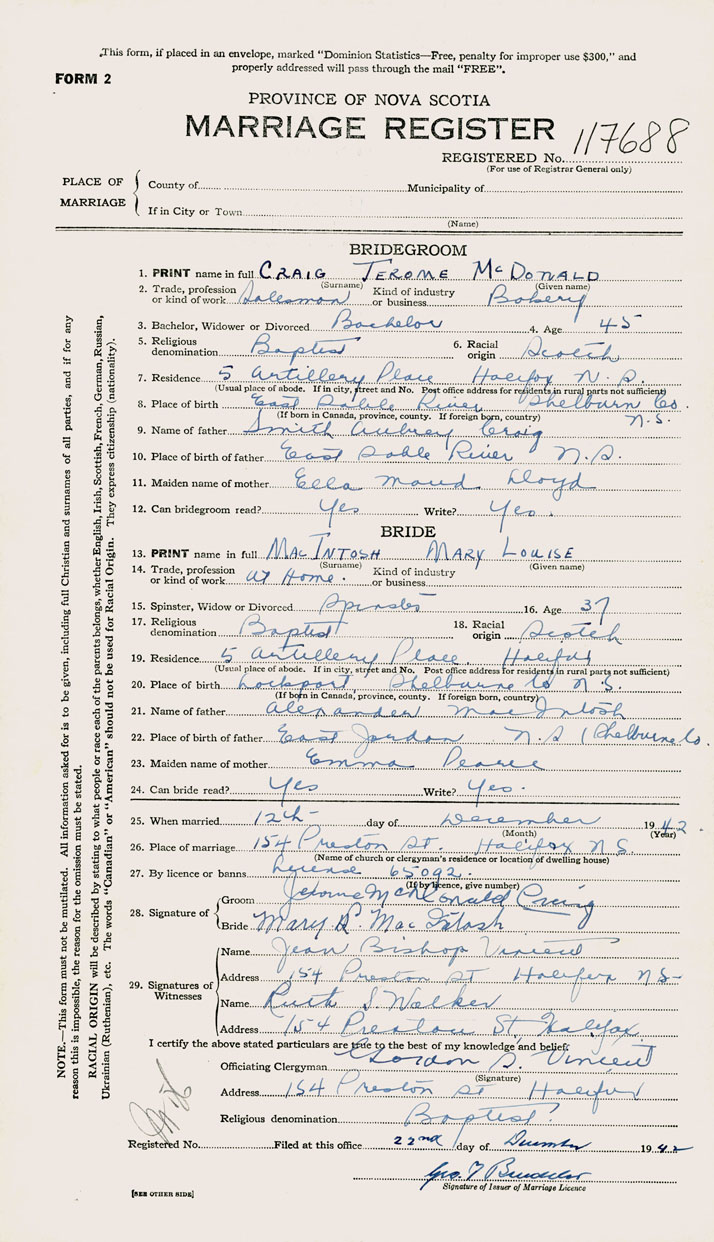 This form, if placed in an envelope, marked "Dominion Statistics—Free, penalty for improper use $300," and
properly addressed will pass through the mail "FREE".
FORM 2
PROVINCE OF NOVA SCOTIA
MARRIAGE REGISTER
117688
REGISTERED No.
(For use of Registrar General only)
PLACE OF MARRIAGE
County of Municipality of
If in City or Town
(Name)
BRIDEGROOM
1. PRINT name in full CRAIG JEROME McDONALD
(Surname) (Given name)
2. Trade, profession or kind of work Salesman Kind of industry or business Bakery
3. Bachelor, Widower or Divorced Bachelor 4. Age 45
5. Religious denomination Baptist 6. Racial origin Scotch
7. Residence 5 Artillery Place Halifax N.S.
(Usual place of abode. If in city, street and No. Post office address for residents in rural parts not sufficient)
8. Place of birth East Sable River Shelburn Co. N.S.
(If born in Canada, province, county. If foreign born, country)
9. Name of father Smith Aubrey Craig
10. Place of birth of father East Sable River N.S.
11. Maiden name of mother Ella Maud Lloyd
12. Can bridegroom read? Yes Write? Yes.
BRIDE
13. PRINT name in full MACINTOSH MARY LOUISE
(Surname) (Given name)
14. Trade, profession or kind of work At Home. Kind of industry or business
15. Spinster, Widow or Divorced Spinster 16. Age 37
17. Religious denomination Baptist 18. Racial origin Scotch
19. Residence 5 Artillery Place, Halifax
(Usual place of abode. If in city, street and No. Post office address for residents in rural parts not sufficient)
20. Place of birth Lockport Shelburne Co N.S.
(If born in Canada, province, county. If foreign born, country)
21. Name of father Alexander MacIntosh
22. Place of birth of father East Jordan N.S (Shelburne Co.
23. Maiden name of mother Emma Pearce
24. Can bride read? Yes Write? Yes.
25. When married 12th day of December 1942
(Month) (Year)
26. Place of marriage 154 Preston St. Halifax N.S.
(Name of church or clergyman's residence or location of dwelling house)
27. By licence or banns License 65092.
(If by licence, give number)
28. Signature of Groom Jerome McDonald Craig
Bride Mary L. MacIntosh
29. Signatures of Witnesses
Name Jean Bishop Vincent
Address 154 Preston St Halifax NS-
Name Ruth S Walker
Address 154 Preston St, Halifax
I certify the above stated particulars are true to the best of my knowledge and belief.
Officiating Clergyman Gordon S. Vincent
(Signature)
Address 154 Preston St Halifax
Religious denomination Baptist.
Registered No. Filed at this office 22nd day of December 1942
Geo. T
Signature of Issuer of Marriage Licence
[SEE OTHER SIDE]
NOTE.—This form must not be mutilated. All information asked for is to be given, including full Christian and surnames of all parties, and if for any
reason this is impossible, the reason for the omission must be stated.
RACIAL ORIGIN will be described by stating to what people or race each of the parents belongs, whether English, Irish, Scottish, French, German, Russian,
Ukrainian (Ruthenian), etc. The words "Canadian" or "American" should not be used for Racial Origin. They express citizenship (nationality).